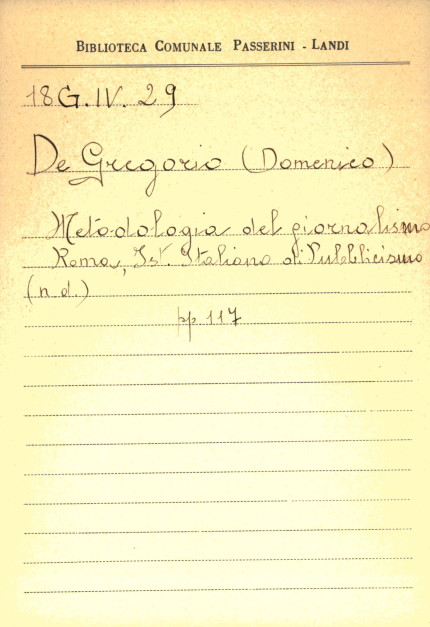 BIBLIOTECA COMUNALE PASSERINI - LANDI
18 G. IV. 29
De Gregorio (Domenico)
Metodologia del giornalismo
Roma, Ist. Italiano di Pubblicismo
(n. d.)
pp. 117